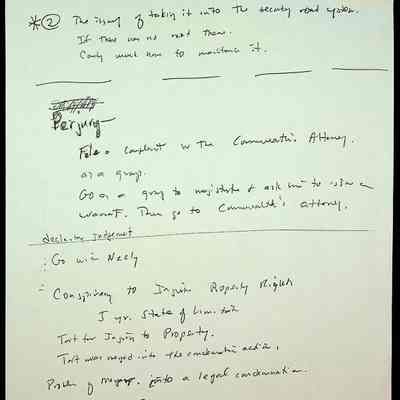 * ② The issue of taking it into the security road system.
If there was no road there.
County would have to maintain it.
Perjury
File a complaint w the Commonwealth's Attorney.
as a group.
Go as a group to magistrate & ask him to issue a
warrant. Then go to Commonwealth's attorney.
declaratory judgement
: Go with Neely
: Conspiracy to Injure Property Rights
yr. Statute of Limitation
Tort for Injury to Property.
Tort was merged into the condemnation action,
Problem of merger into a legal condemnation